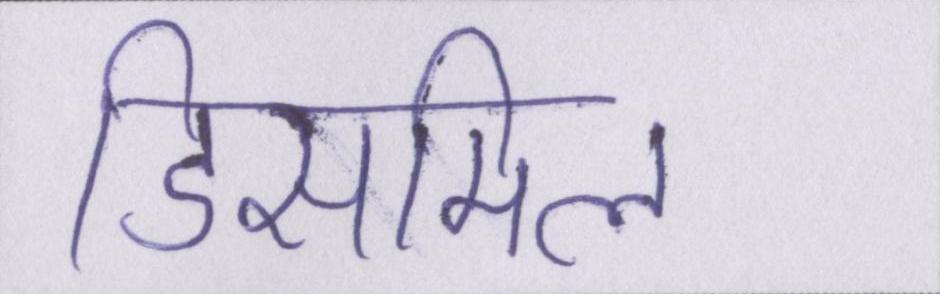 डिसमिल